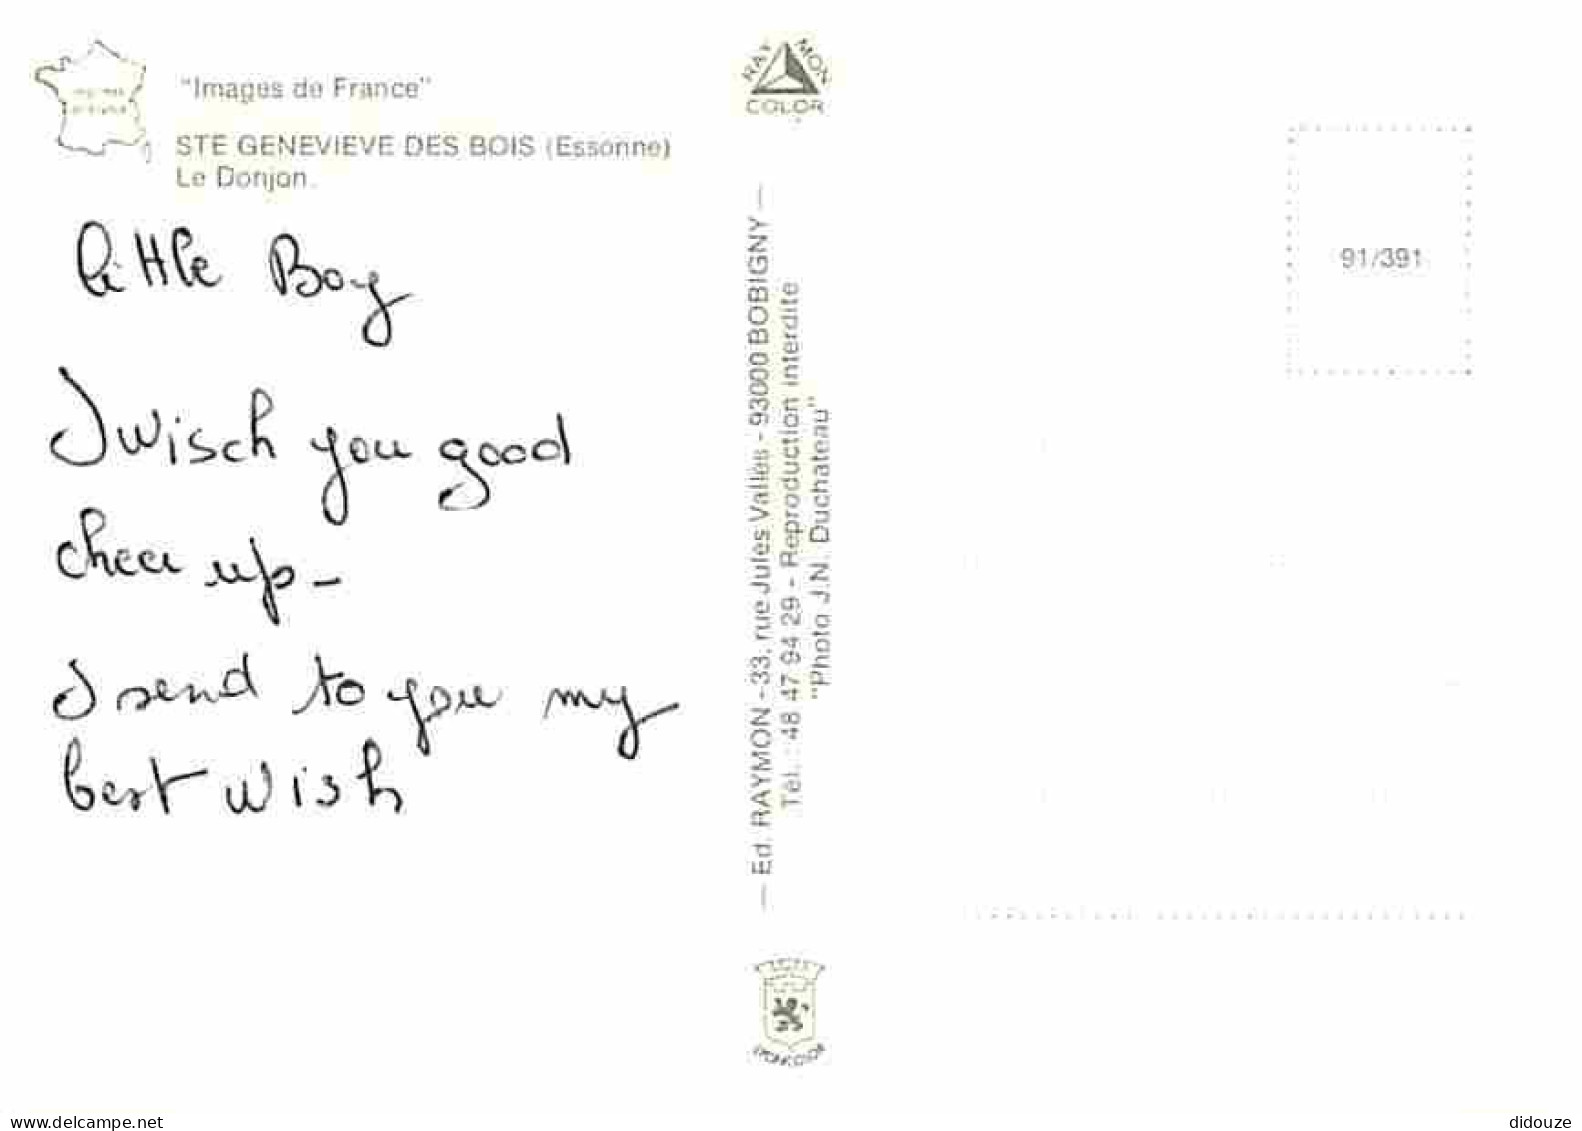 "Images de France"
STE GENEVIEVE DES BOIS (Essonne)
Le Donjon.
little Boy
I wisch you good
cheer up -
I send to you my
best wish
RAY MON
COLOR
— Ed. RAYMON - 33, rue Jules Vallès - 93000 BOBIGNY —
Tél. : 48 47 94 29 - Reproduction interdite
"Photo J.N. Duchateau"
LYONCOLOR
91/391
delcampe.net
didouze